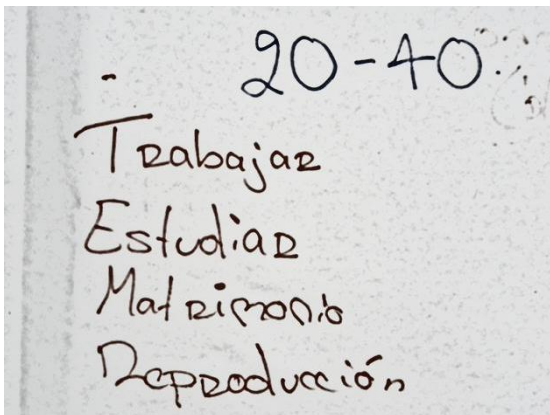 20-40.
Trabajar
Estudiar
Matrimonio
Reproducción